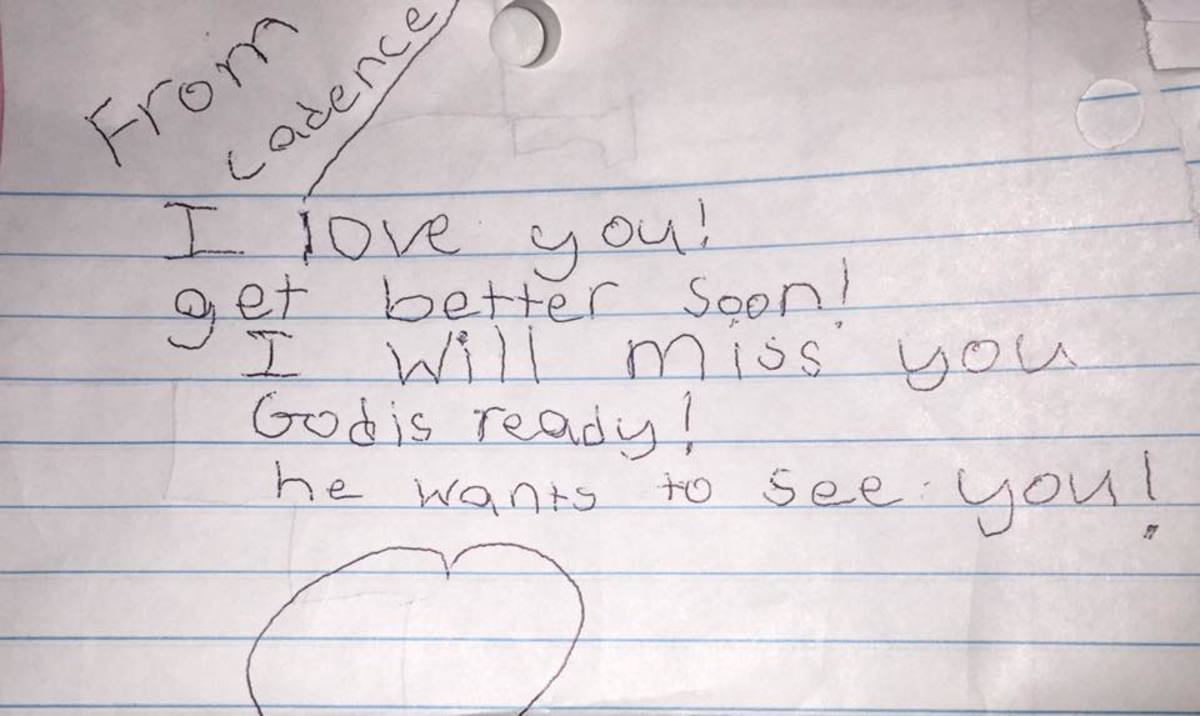 From
cadence
I love you!
get better soon!
I will miss you
God is ready!
he wants to see you!